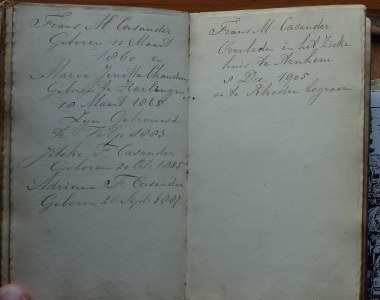 Frans M Casander
Geboren 11 Maart
1860 en
Maria
Geboren te Harlingen
18 Maart 1868
Zyn Getrouwd
1883
F Casander
Geboren 20 Oct. 1885
Adriana F. Casander
Geboren 26 Sept. 1887
Frans M. Casander
Overleden in het Zieken
huis te Arnhem
9 Dec. 1905
en te Rheden begraven